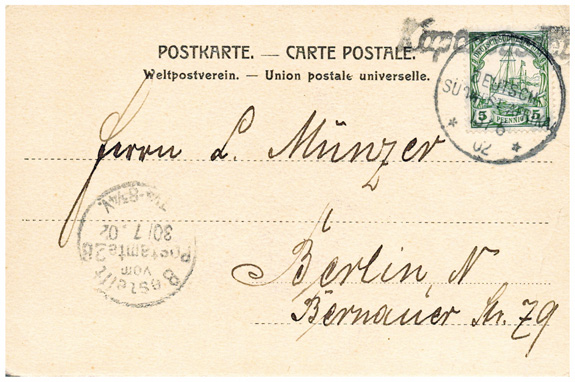 POSTKARTE. — CARTE POSTALE.
Weltpostverein. — Union postale universelle.
DEUTSCH-
SÜDWEST-AFRIKA
02
5 PFENNIG 5
Herrn L. Münzer
Berlin, N
Bernauer Str. 79
Bestellt
vom
Postamte 28
30/7.02